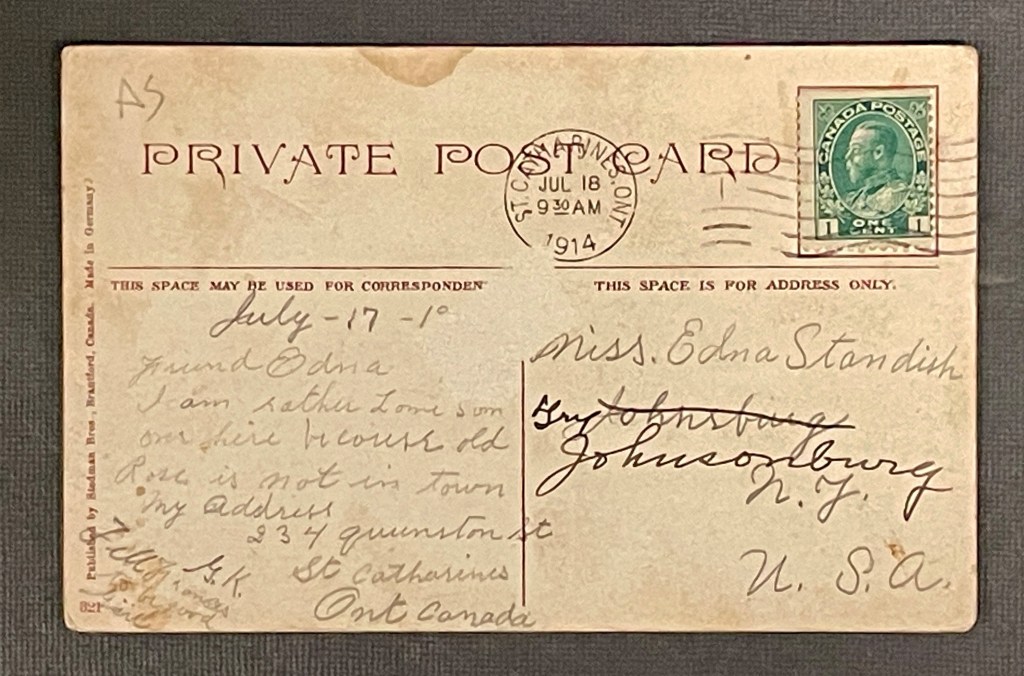 AS
PRIVATE POST CARD
ST. CATHARINES. ONT
JUL 18
9 30 AM
1914
CANADA POSTAGE
1 ONE CENT 1
THIS SPACE MAY BE USED FOR CORRESPONDEN
THIS SPACE IS FOR ADDRESS ONLY.
July - 17 - 1
Friend Edna
I am rather Lone som
over here becouse old
Rose is not in town
My Address
234 queenston St
St Catharines
Ont Canada
G. K.
Tell
to be good
Miss. Edna Standish
Try Johnsburg
Johnsonburg
N. Y.
U. S. A.
Published by Stedman Bros., Brantford, Canada. Made in Germany.
821